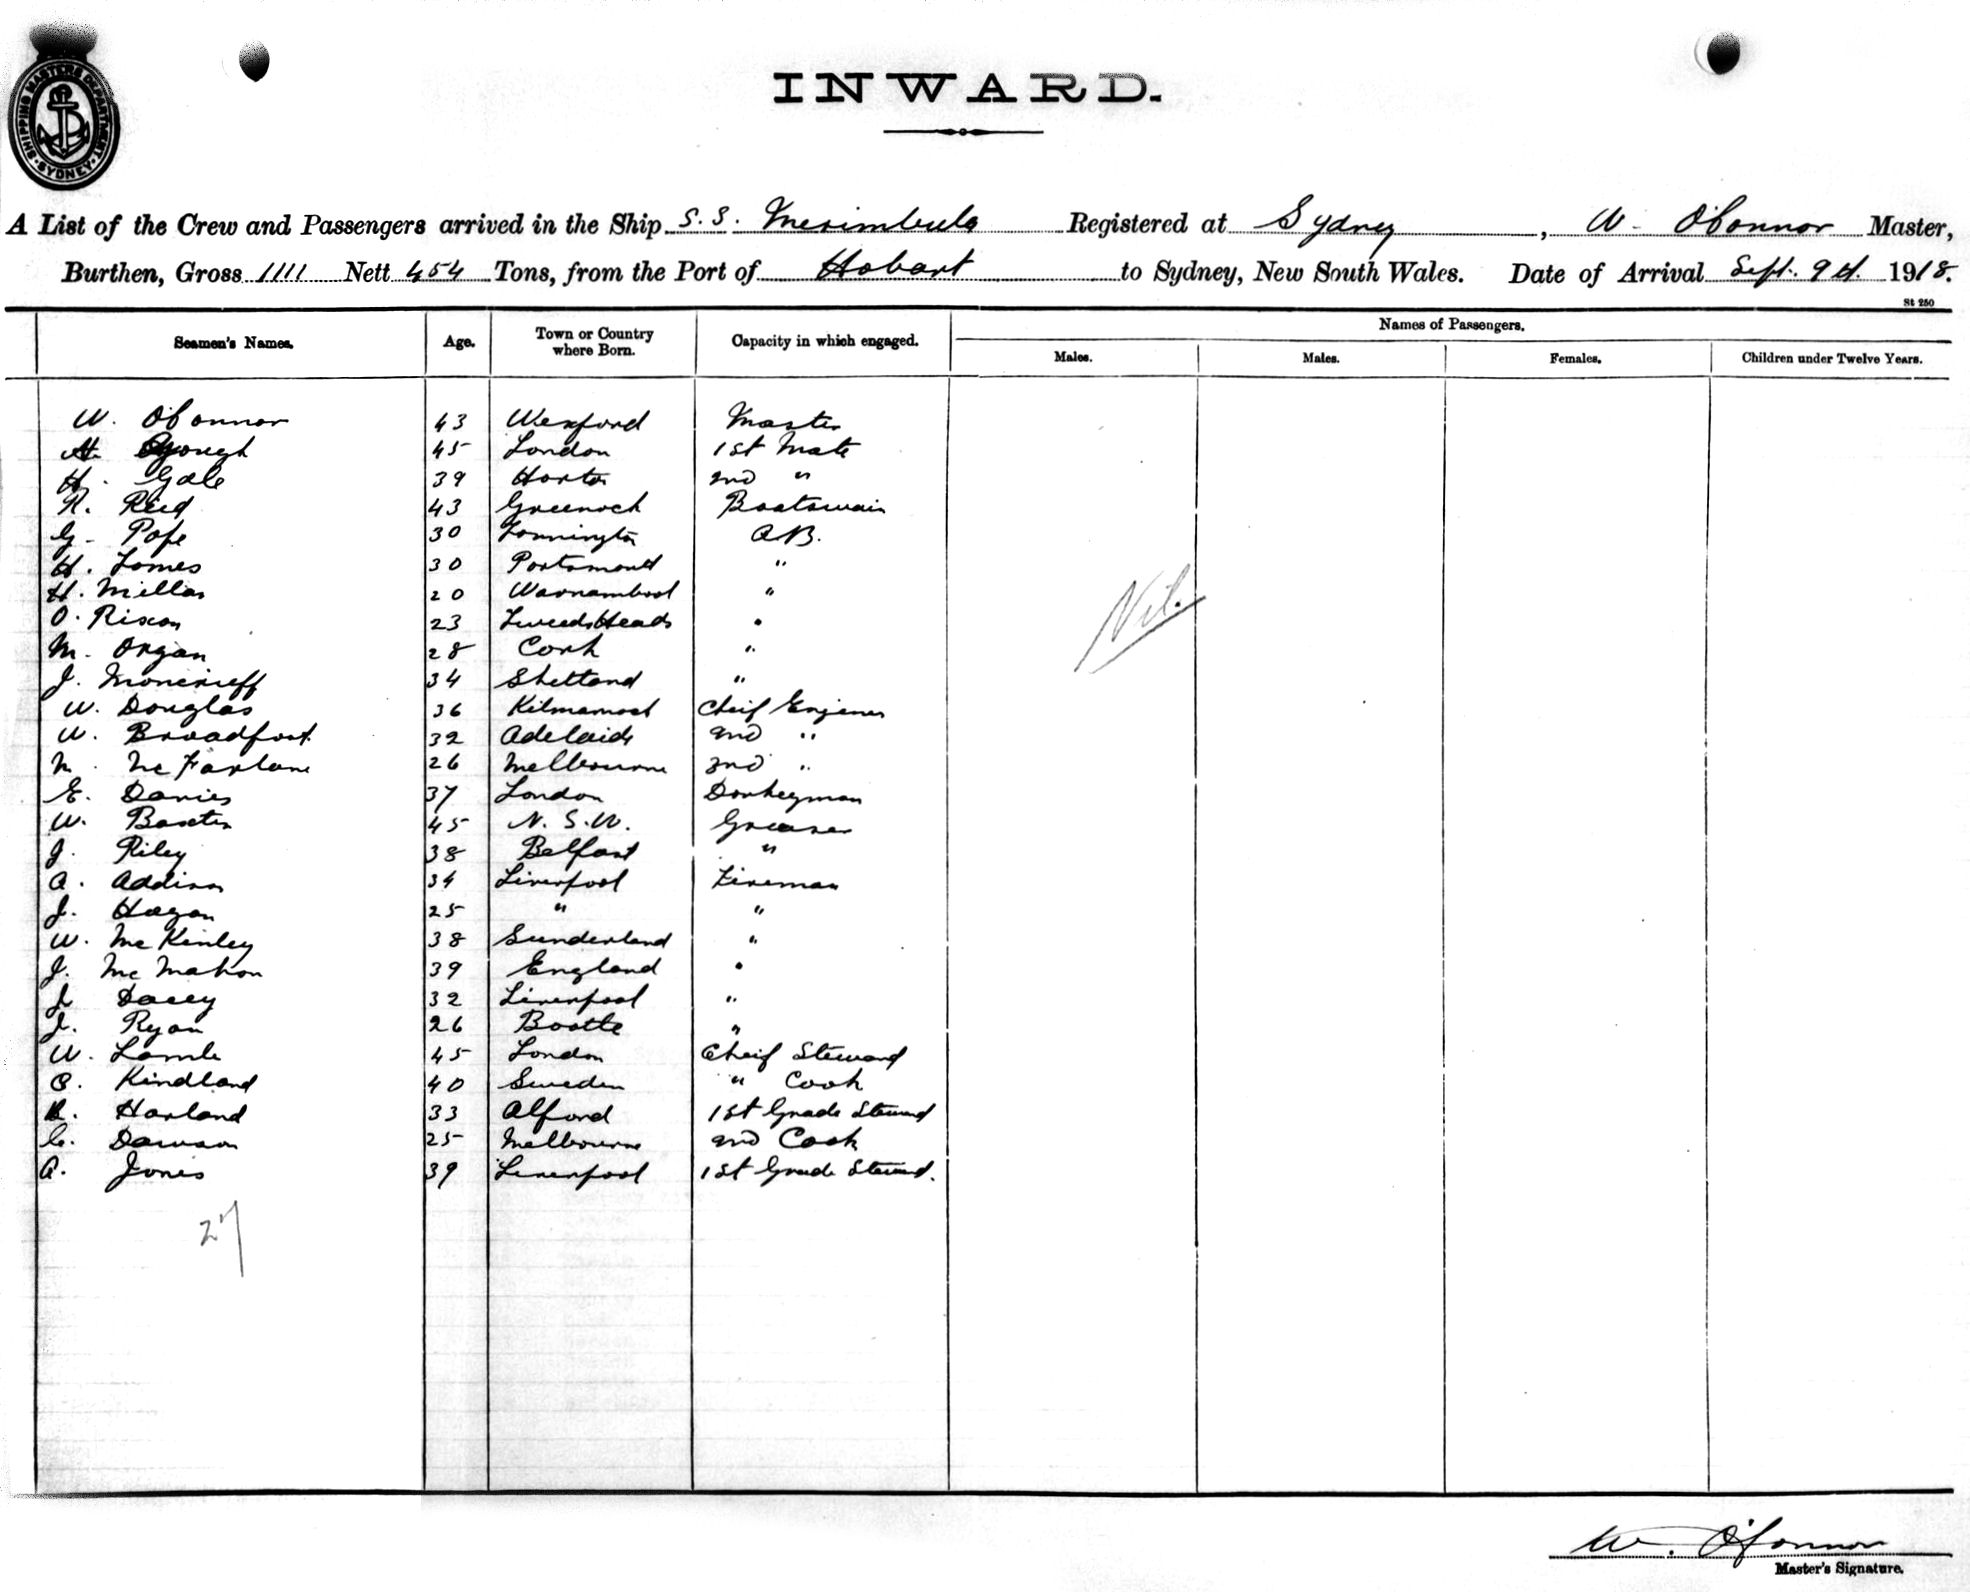 SHIPPING MASTERS DEPARTMENT · SYDNEY ·
INWARD.
A List of the Crew and Passengers arrived in the Ship S.S. Merimbula Registered at Sydney, W. O'Connor Master,
Burthen, Gross 1111 Nett 454 Tons, from the Port of Hobart to Sydney, New South Wales. Date of Arrival Sept. 9th 1918.
St 250
Seamen's Names. Age. Town or Country where Born. Capacity in which engaged. Names of Passengers.
Males. Males. Females. Children under Twelve Years.
W. O'Connor 43 Wexford Master
Gough 45 London 1st Mate
H. Gale 39 2nd "
N. Reid 43 Greenock Boatswain
G. Pope 30 A.B.
H. 30 Portsmouth "
H. Millar 20 Warnambool "
O. Rixon 23 Tweeds Heads "
M. Organ 28 Cork "
J. Moncrieff 34 Shetland "
W. Douglas 36 Kilmarnock Cheif Enginer
W. Broadfoot 32 Adelaide 2nd "
N. McFarlane 26 Melbourne 3rd "
E. Davies 37 London Donkeyman
W. Baxter 45 N.S.W. Greaser
J. Riley 38 Belfast "
A. Addison 34 Liverpool Fireman
J. Hagan 25 " "
W. McKinley 38 Sunderland "
J. McMahon 39 England "
J. Dacey 32 Liverpool "
J. Ryan 26 Bootle "
W. Lamb 45 London Cheif Steward
Kindland 40 Sweden " Cook
R. Harland 33 Alford 1st Grade Steward
C. Dawson 25 Melbourne 2nd Cook
A. Jones 39 Liverpool 1st Grade Steward.
Nil.
27
W. O'Connor
Master's Signature.